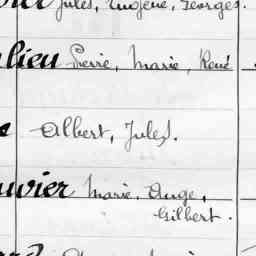 Jules, Eugène, Georges.
lieu Pierre, Marie, René
Albert, Jules.
uvier Marie, Ange,
Gilbert.